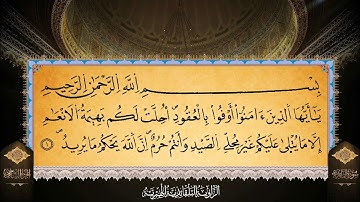 بِسْمِ اللَّهِ الرَّحْمَٰنِ الرَّحِيمِ
يَا أَيُّهَا الَّذِينَ ءَامَنُوا أَوْفُوا بِالْعُقُودِ أُحِلَّتْ لَكُم بَهِيمَةُ الْأَنْعَامِ
إِلَّا مَا يُتْلَىٰ عَلَيْكُمْ غَيْرَ مُحِلِّي الصَّيْدِ وَأَنتُمْ حُرُمٌ إِنَّ اللَّهَ يَحْكُمُ مَا يُرِيدُ